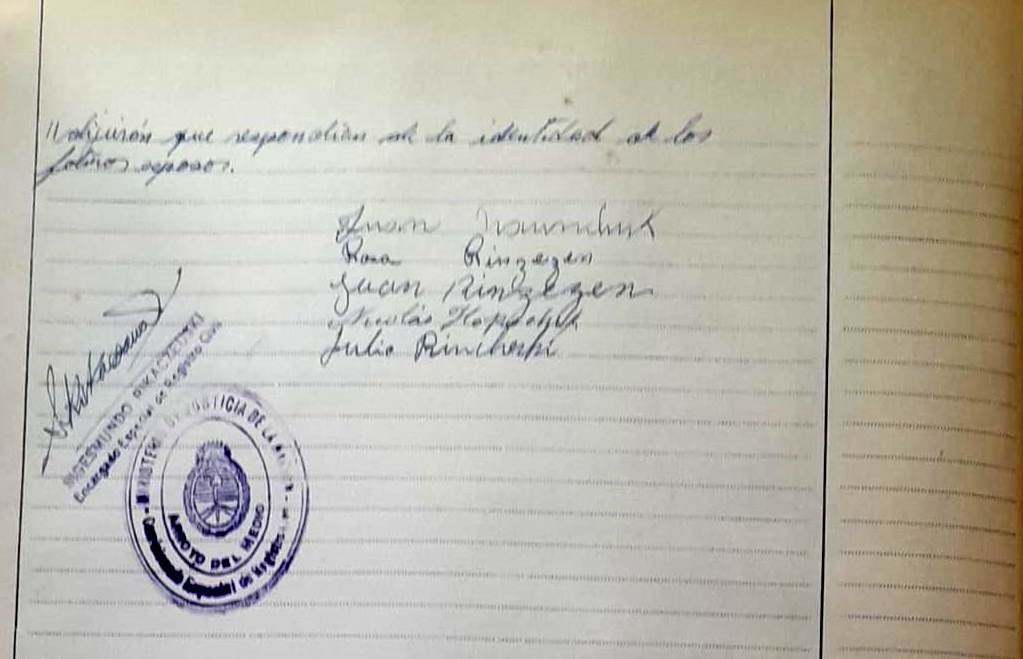 // dijeron que respondian de la identidad de los
futuros esposos.
Juan
Rosa Rinzezen
Juan Rinzezen
Nicolás
Julio Rincheski
SIGESMUNDO RIKACZEWSKI
Encargado Especial de Registro Civil
MINISTERIO DE JUSTICIA DE LA NACION
ARROYO DEL MEDIO
Especial de Registro